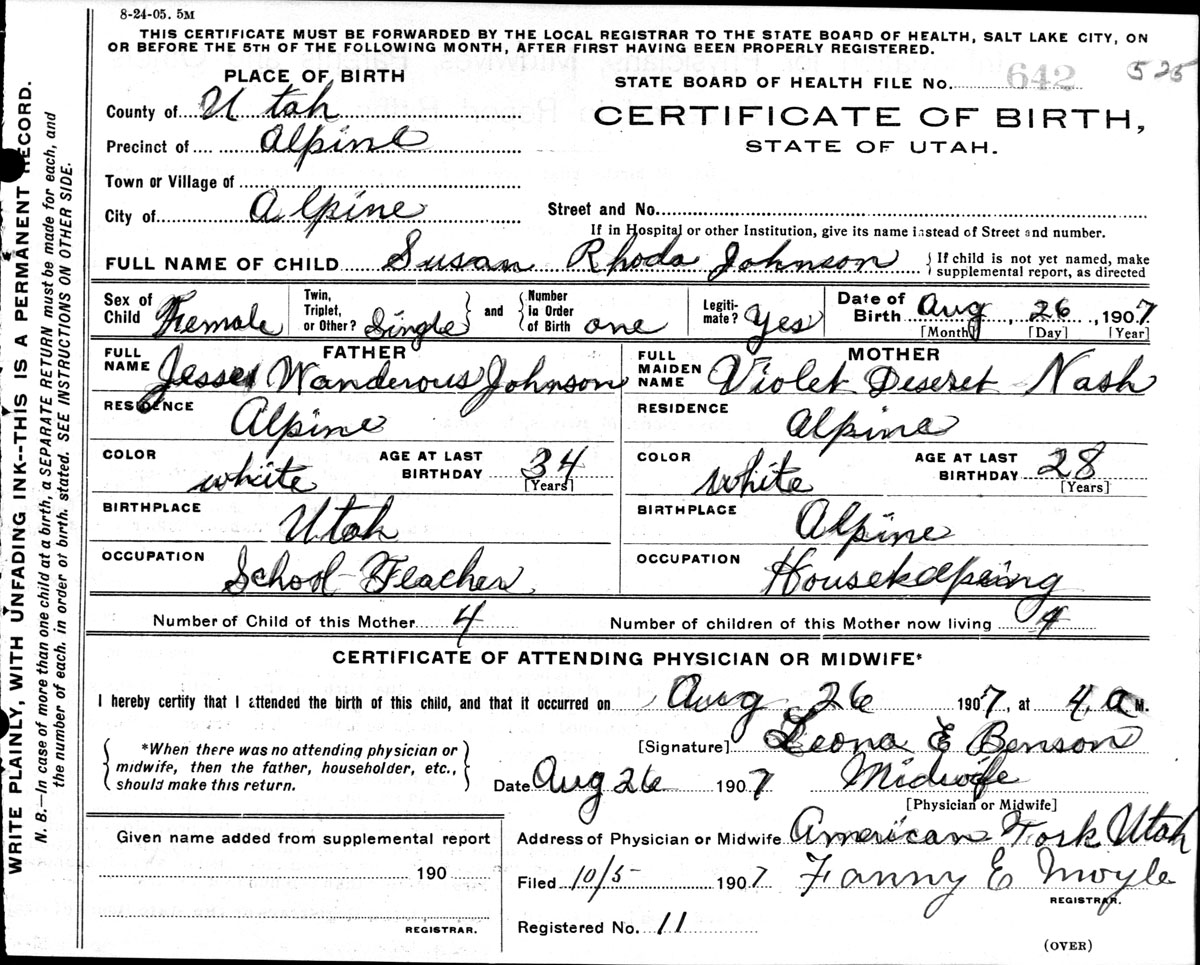 8-24-05. 5M
THIS CERTIFICATE MUST BE FORWARDED BY THE LOCAL REGISTRAR TO THE STATE BOARD OF HEALTH, SALT LAKE CITY, ON
OR BEFORE THE 5TH OF THE FOLLOWING MONTH, AFTER FIRST HAVING BEEN PROPERLY REGISTERED.
PLACE OF BIRTH
STATE BOARD OF HEALTH FILE No. 642 525
County of Utah
CERTIFICATE OF BIRTH,
Precinct of Alpine
STATE OF UTAH.
Town or Village of
City of Alpine
Street and No.
If in Hospital or other Institution, give its name instead of Street and number.
FULL NAME OF CHILD Susan Rhoda Johnson { If child is not yet named, make
supplemental report, as directed
Sex of Child Female
Twin, Triplet, or Other? Single
and
Number in Order of Birth one
Legitimate? Yes
Date of Birth Aug, 26, 1907
[Month] [Day] [Year]
FATHER
FULL NAME Jesse Wanderous Johnson
MOTHER
FULL MAIDEN NAME Violet Deseret Nash
RESIDENCE Alpine
RESIDENCE Alpine
COLOR white
AGE AT LAST BIRTHDAY 34
[Years]
COLOR white
AGE AT LAST BIRTHDAY 28
[Years]
BIRTHPLACE Utah
BIRTHPLACE Alpine
OCCUPATION School Teacher
OCCUPATION Housekeeping
Number of Child of this Mother 4
Number of children of this Mother now living 4
CERTIFICATE OF ATTENDING PHYSICIAN OR MIDWIFE*
I hereby certify that I attended the birth of this child, and that it occurred on Aug 26 1907, at 4, a M.
*When there was no attending physician or
midwife, then the father, householder, etc.,
should make this return.
[Signature] Leona E Benson
Date Aug 26 1907 Midwife
[Physician or Midwife]
Given name added from supplemental report
190
REGISTRAR.
Address of Physician or Midwife American Fork Utah
Filed 10/5 1907 Fanny E Moyle
REGISTRAR.
Registered No. 11
(OVER)
WRITE PLAINLY, WITH UNFADING INK--THIS IS A PERMANENT RECORD.
N. B.—In case of more than one child at a birth, a SEPARATE RETURN must be made for each, and
the number of each, in order of birth, stated. SEE INSTRUCTIONS ON OTHER SIDE.